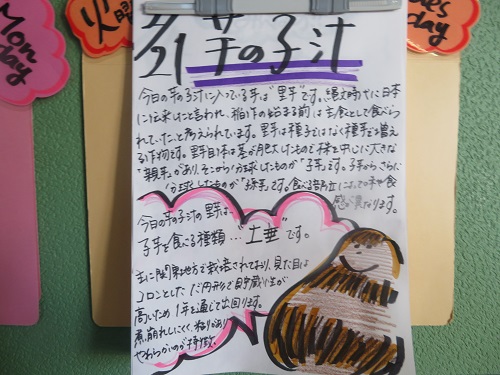 Mon
day
火曜
ues
day
/21 芋の子汁
今日の芋の子汁に入っている芋は"里芋"です。縄文時代に日本
に伝来したと言われ、稲作の始まる前は主食として食べら
れていたと考えられています。里芋は種子ではなく種芋で増え
る作物です。里芋自体は茎が肥大したもので株を中心に大きな
"親芋"があり、そこから分球したものが"子芋"です。子芋からさらに
分球したものが"孫芋"です。食べる部位によって味や食
感が異なります。
今日の芋の子汁の里芋は、
子芋を食べる種類…"土垂"です。
主に関東地方で栽培されており、見た目は
コロンとした だ円形で貯蔵性が
高いため 1年を通じて出回ります。
煮崩れしにくく、粘りがあり
やわらかいのが特徴。